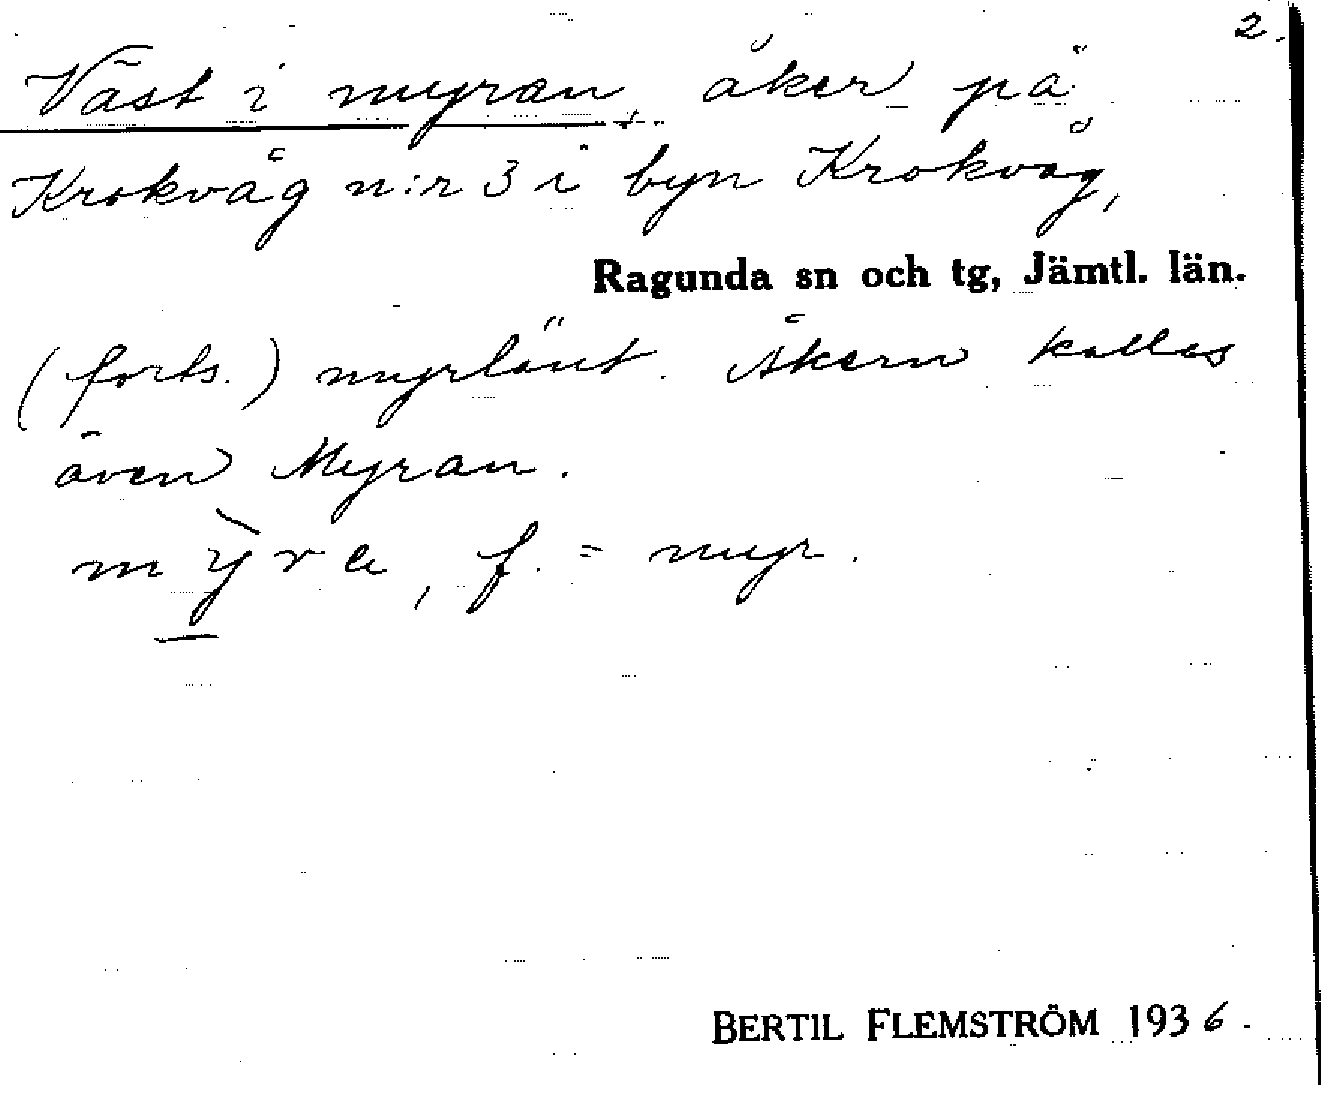 2.
Väst i myran, åker på
Krokvåg n:r 3 i byn Krokvåg,
Ragunda sn och tg, Jämtl. län.
(forts.) myrlänt. Åkern kallas
även Myran.
f. = myr.
BERTIL FLEMSTRÖM 1936.